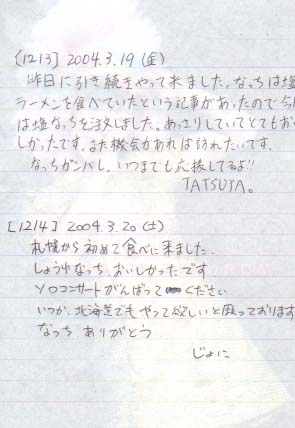 [1213] 2004.3.19 (金)
昨日に引き続きやって来ました。なっちは塩
ラーメンを食べていたという記事があったので今
は塩なっちを注文しました。あっさりしていてとてもお
しかったです。また機会があれば訪れたいです。
なっちガンバレ、いつまでも応援してるよ!!
TATSUYA。
[1214] 2004.3.20 (土)
札幌から初めて食べに来ました。
しょうゆなっち おいしかったです
ソロコンサートがんばって ください
いつか、北海道でも やって欲しいと願っております
なっち ありがとう
じょに